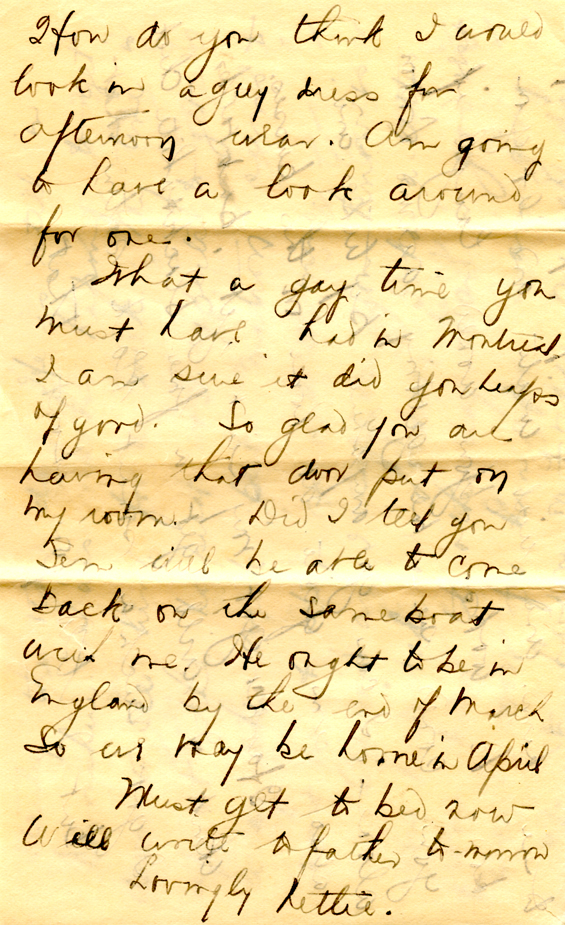 How do you think I would
look in a grey dress for
afternoon wear. Am going
to have a look around
for one.
What a gay time you
must have had in Montreal
I am sure it did you heaps
of good. So glad you are
having that door put on
my room. Did I tell you
will be able to come
back on the same boat
with me. He ought to be in
England by the end of March
So we may be home in April
Must get to bed now
Will write to father to-morrow
Lovingly Lettie.